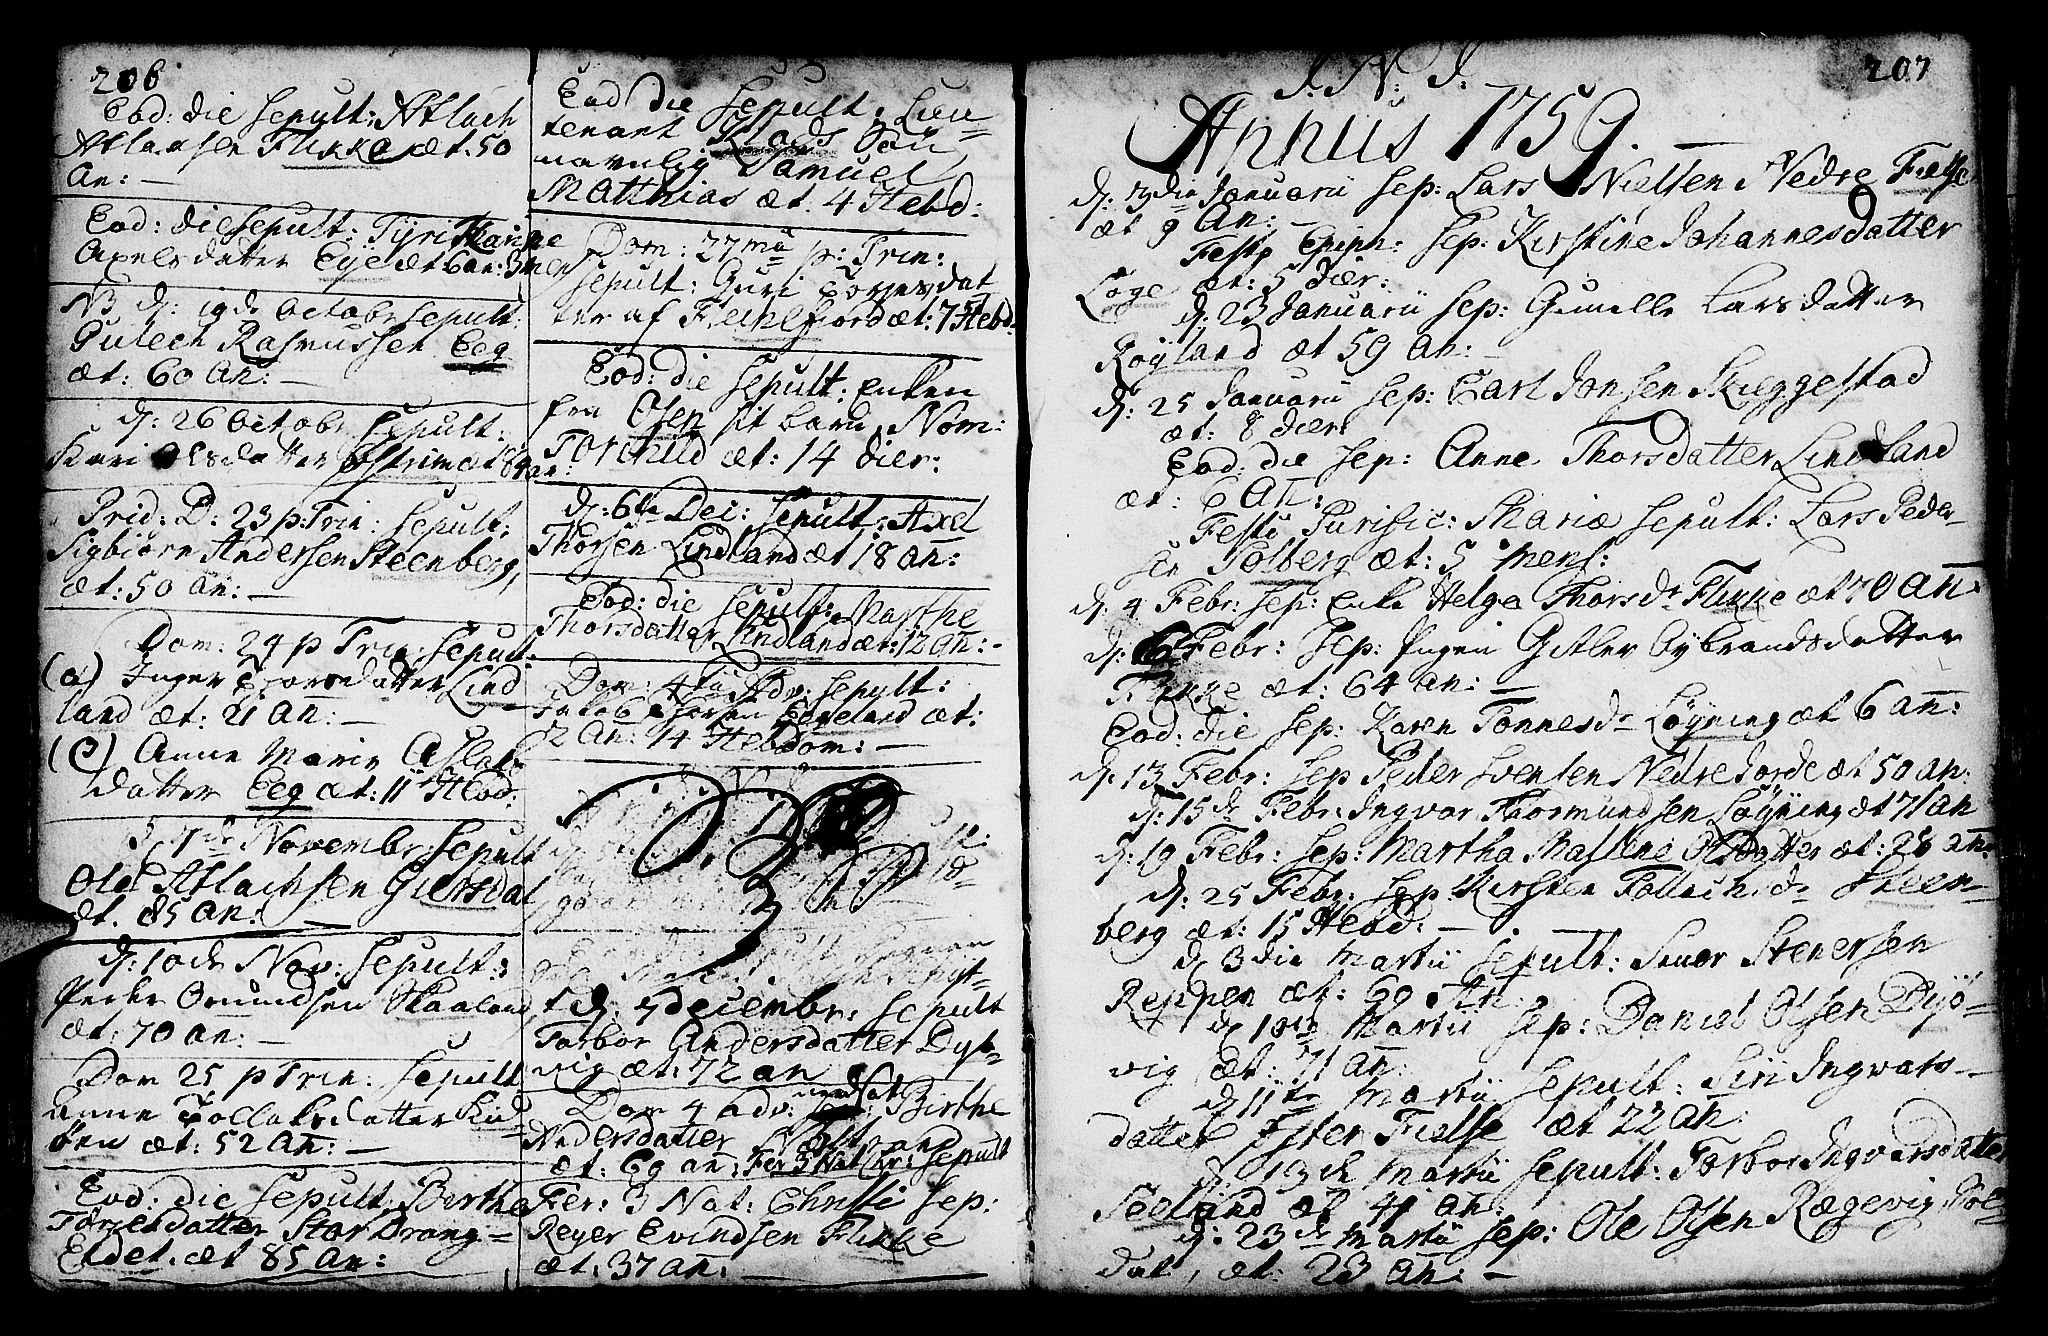 206
Eod: die sepult: Atlach
Atlaksen Flikke æt. 50
an: —
Eod: die sepult: Tyri Karine
Axelsdatter Eye æt: 6 an: 3 men
NB d: 19de Octobr sepult:
Gulech Rasmussen Eeg
æt: 60 an: —
d: 26 Octobr sepult:
Kari Olsdatter
Prid: D: 23 p: Trin: sepult:
Sigbiørn Andersen Steenberg,
æt: 50 an: —
Dom: 24 p Trin: sepult:
(a) Inger Thorsdatter Lind
land æt: 21 an: —
(e) Anne Marie Aslaks
datter Eeg æt: 11 Hebd:
Novembr: sepult
Ole Atlachsen Giersdal
æt. 85 an: —
d: 10de Nov: sepult:
Peder Omundsen Skaaland
æt: 70 an: —
Dom 25 p Trin: sepult
Anne Tollaksdatter
æt: 52 an: —
Eod: die sepult: Berthe
datter Stordrang=
Eidet. æt 85 an:
Eod die sepult. Lieu=
tenant Søn
navnlig Samuel
Matthias æt. 4 Hebd:
Dom: 27ma p: Trin:
sepult: Guri dat
ter af æt: 7 Hebd:
Eod: die sepult: Enken
fra Osen sit barn, Nom:
Torchild æt: 14 dier:
d: 6te Dec: sepult: Axel
Thorsen Lindland æt 18 an:
Eod: die sepult: Marthe
Thorsdatter Lindland æt: 12 an: -
Dom: 4ta Adv: sepult:
Jacob Eegeland æt:
2 an: 14 Hebdom: —
d: 7 Decembr: sepult
Torbor Andersdatter Dyp=
vig æt. 72 an
Dom 4 adv: Birthe
Andersdatter
æt: 69 an: Fer 3 Nat Chr: sepult
Fer: 3 Nat: Christi sep:
Reyer Evindsen Flikke
æt. 37 an. —
207
J. N. J.
Annus 1759. —
d: 3die Januarii sep: Lars Nielsen Nedre
æt 9 an: —
Festo Epiph: sep: Kirstine Johannesdatter
Loge æt: 5 dier:
d: 23 Januarii sep: Gunille Larsdatter
Røyland æt 59 an: —
d: 25 Januarii sep: Carl Jonsen Skeggestad
æt: 8 dier
Eod: die sep: Anne Thorsdatter Lindland
æt: 6 an:
Festo Purific: Mariæ sepult: Lars Peder=
sen Solberg æt: 5 mens:
d: 4 Febr: sep: Enke Helge Thorsdr Flikke æt 70 an:
d: 6 Febr: sep: Pigen Gitler Oybrandsdatter
Flikke æt: 64 an: —
Eod: die sep: Karen Tonnesdr Løyning æt 6 an:
d: 13 Febr: sep Peder Svensen Nedre Jorde æt 50 an.
d: 15de Febr: Ingvor Thormundsen Løyning æt 71 an
d: 19 Febr: sep: Martha Malene Olsdatter æt: 28 an.
d: 25 Febr: sep: Kirsten Tollachsdr Steen=
berg æt: 15 Hebd: —
d 3die Martii sepult: Sivor Stenersen
Reppen æt: 69 an:
d 10de Martii sep: Daniel Olsen Dyb=
vig æt: 71 an:
d 11te Martii sepult: Siri Ingvars=
datter Yster æt 22 an:
d. 13de Martii sepult: Torbor Ingvarsdatter
Seeland æt 41 an:
d: 23de Martii sep: Ole Olsen Rægevig,
dal, æt: 23 an: —